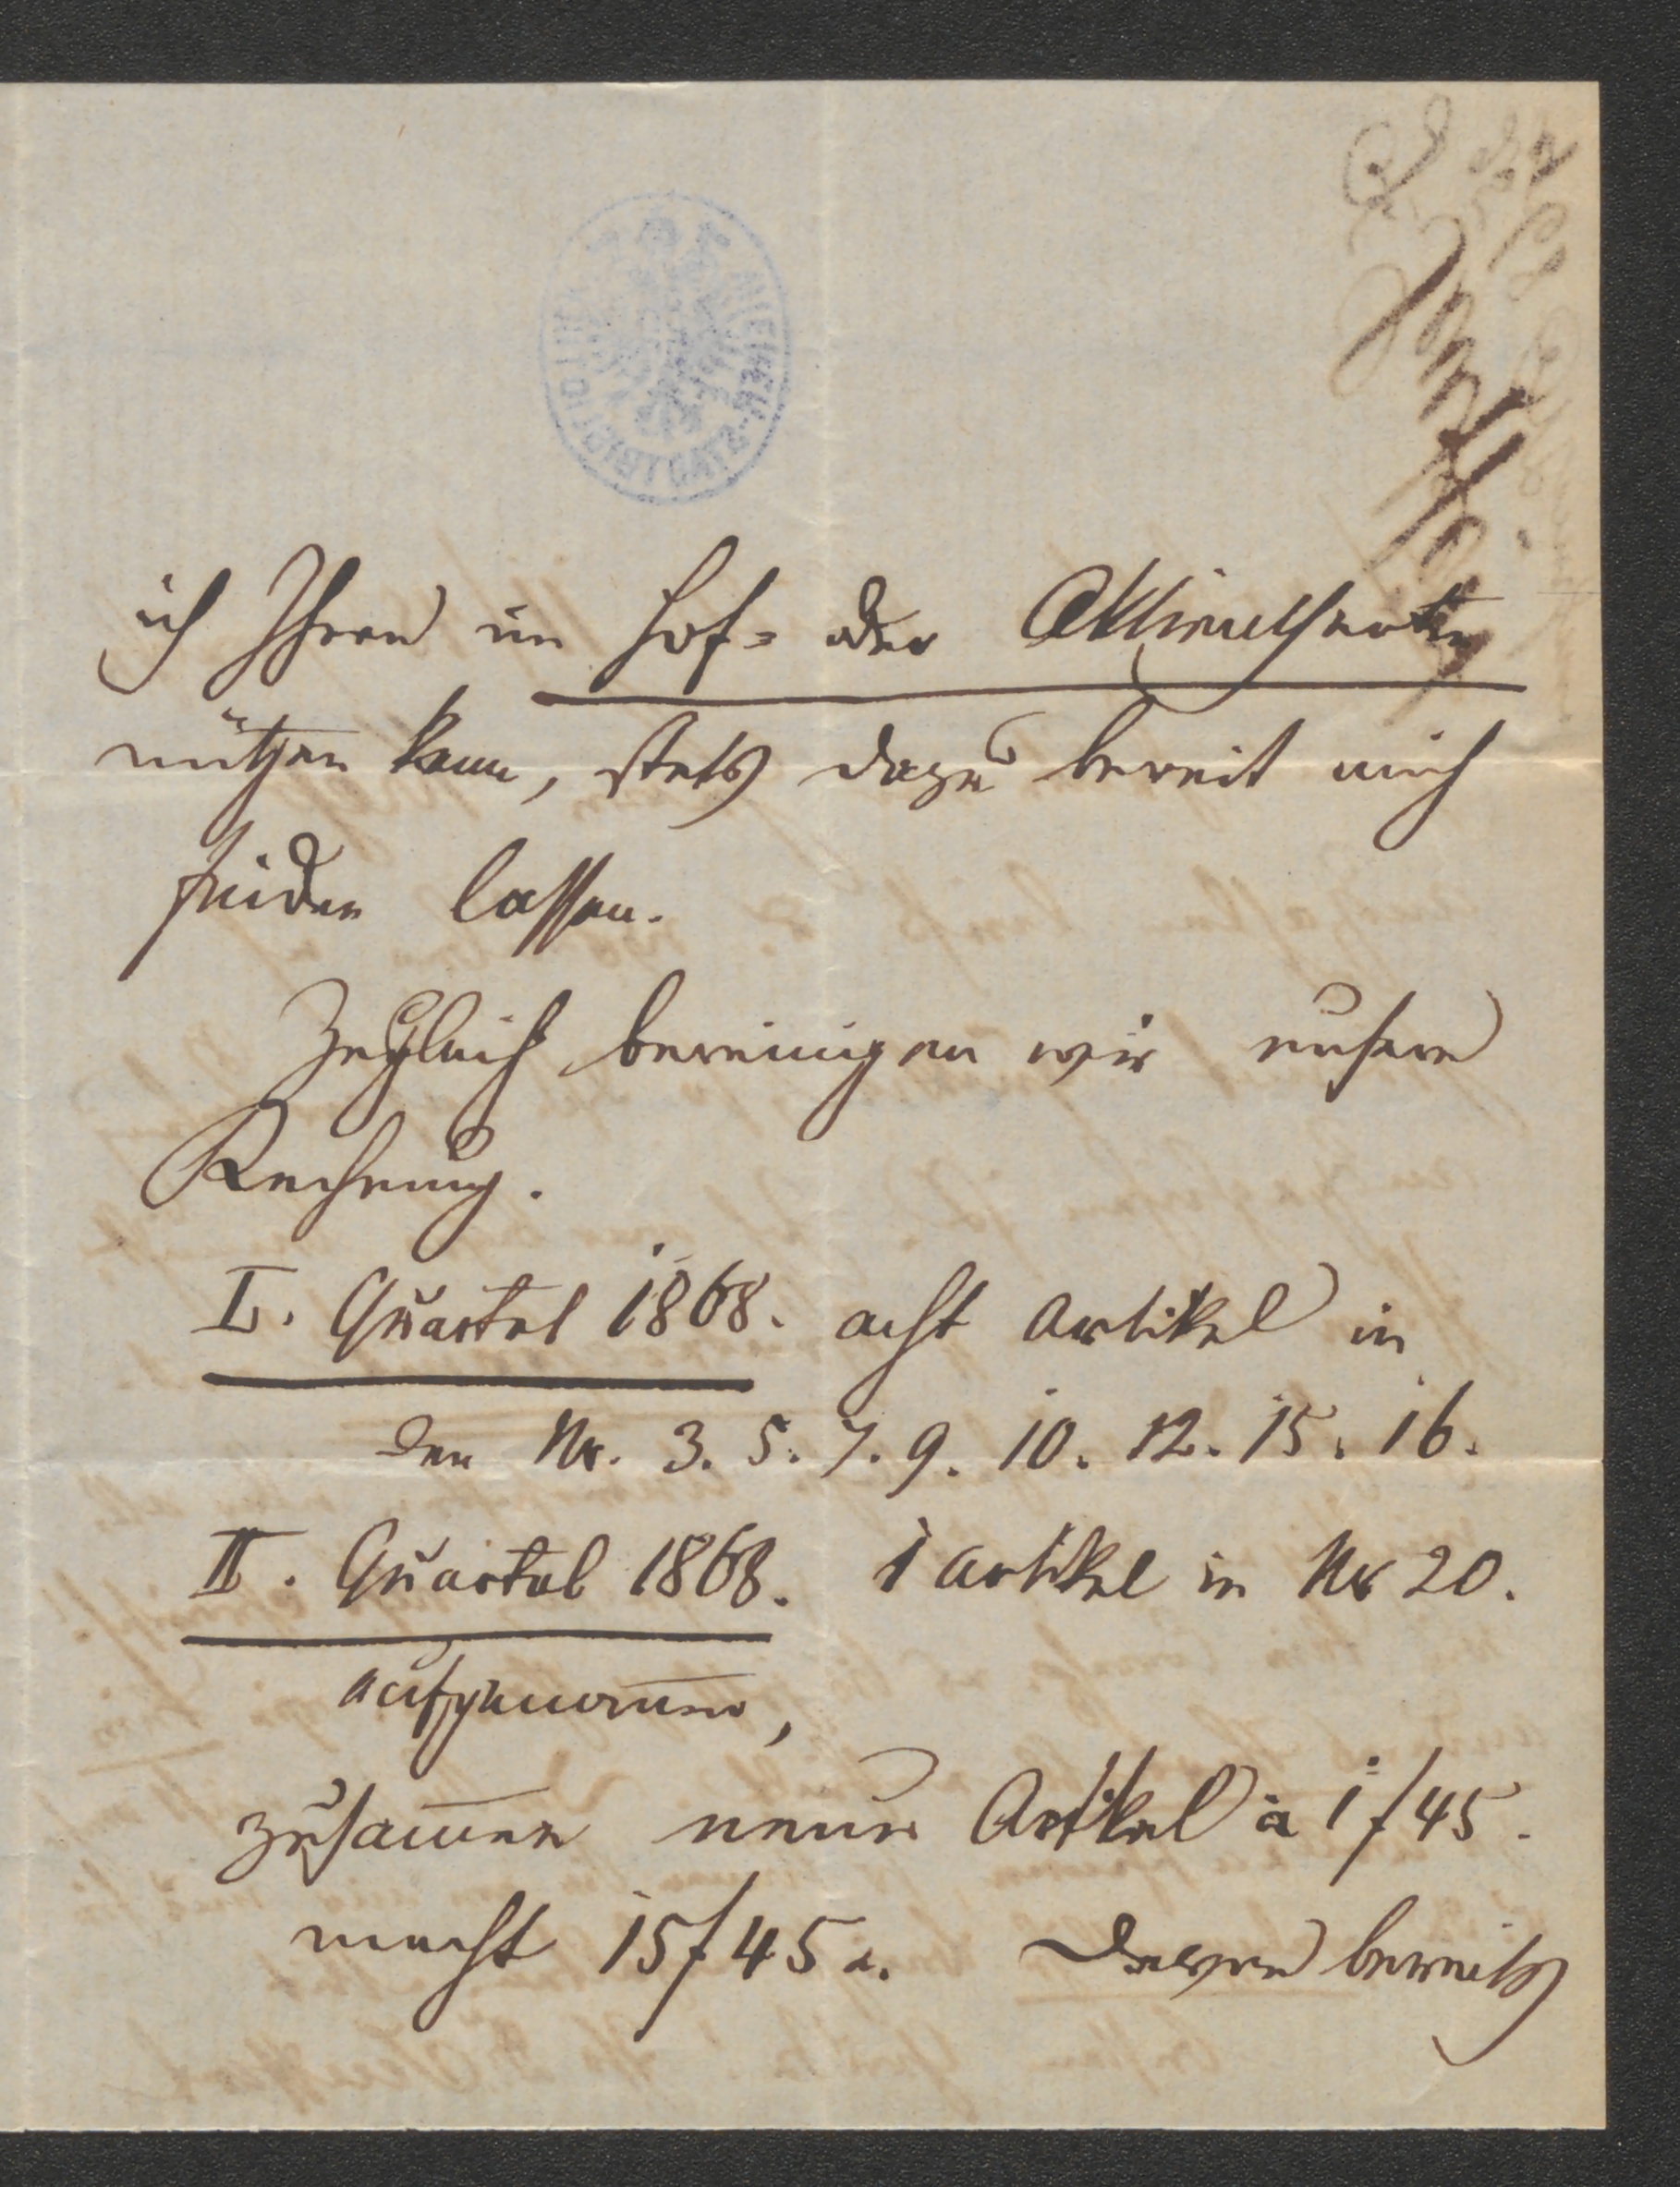 ich Ihnen im Hof- oder Aktientheater
nützen kann, stets dazu bereit mich
finden lassen.
Zugleich bereinigen wir unsere
Rechnung.
I. Quartal 1868. acht Artikel in
den Nr. 3. 5. 7. 9. 10. 12. 15. 16.
II. Quartal 1868. 1 Artikel in Nr 20.
aufgenom̅en,
zusam̅en neun Artikel à 1 f 45.
macht 15 f 45 x. Davon bereits